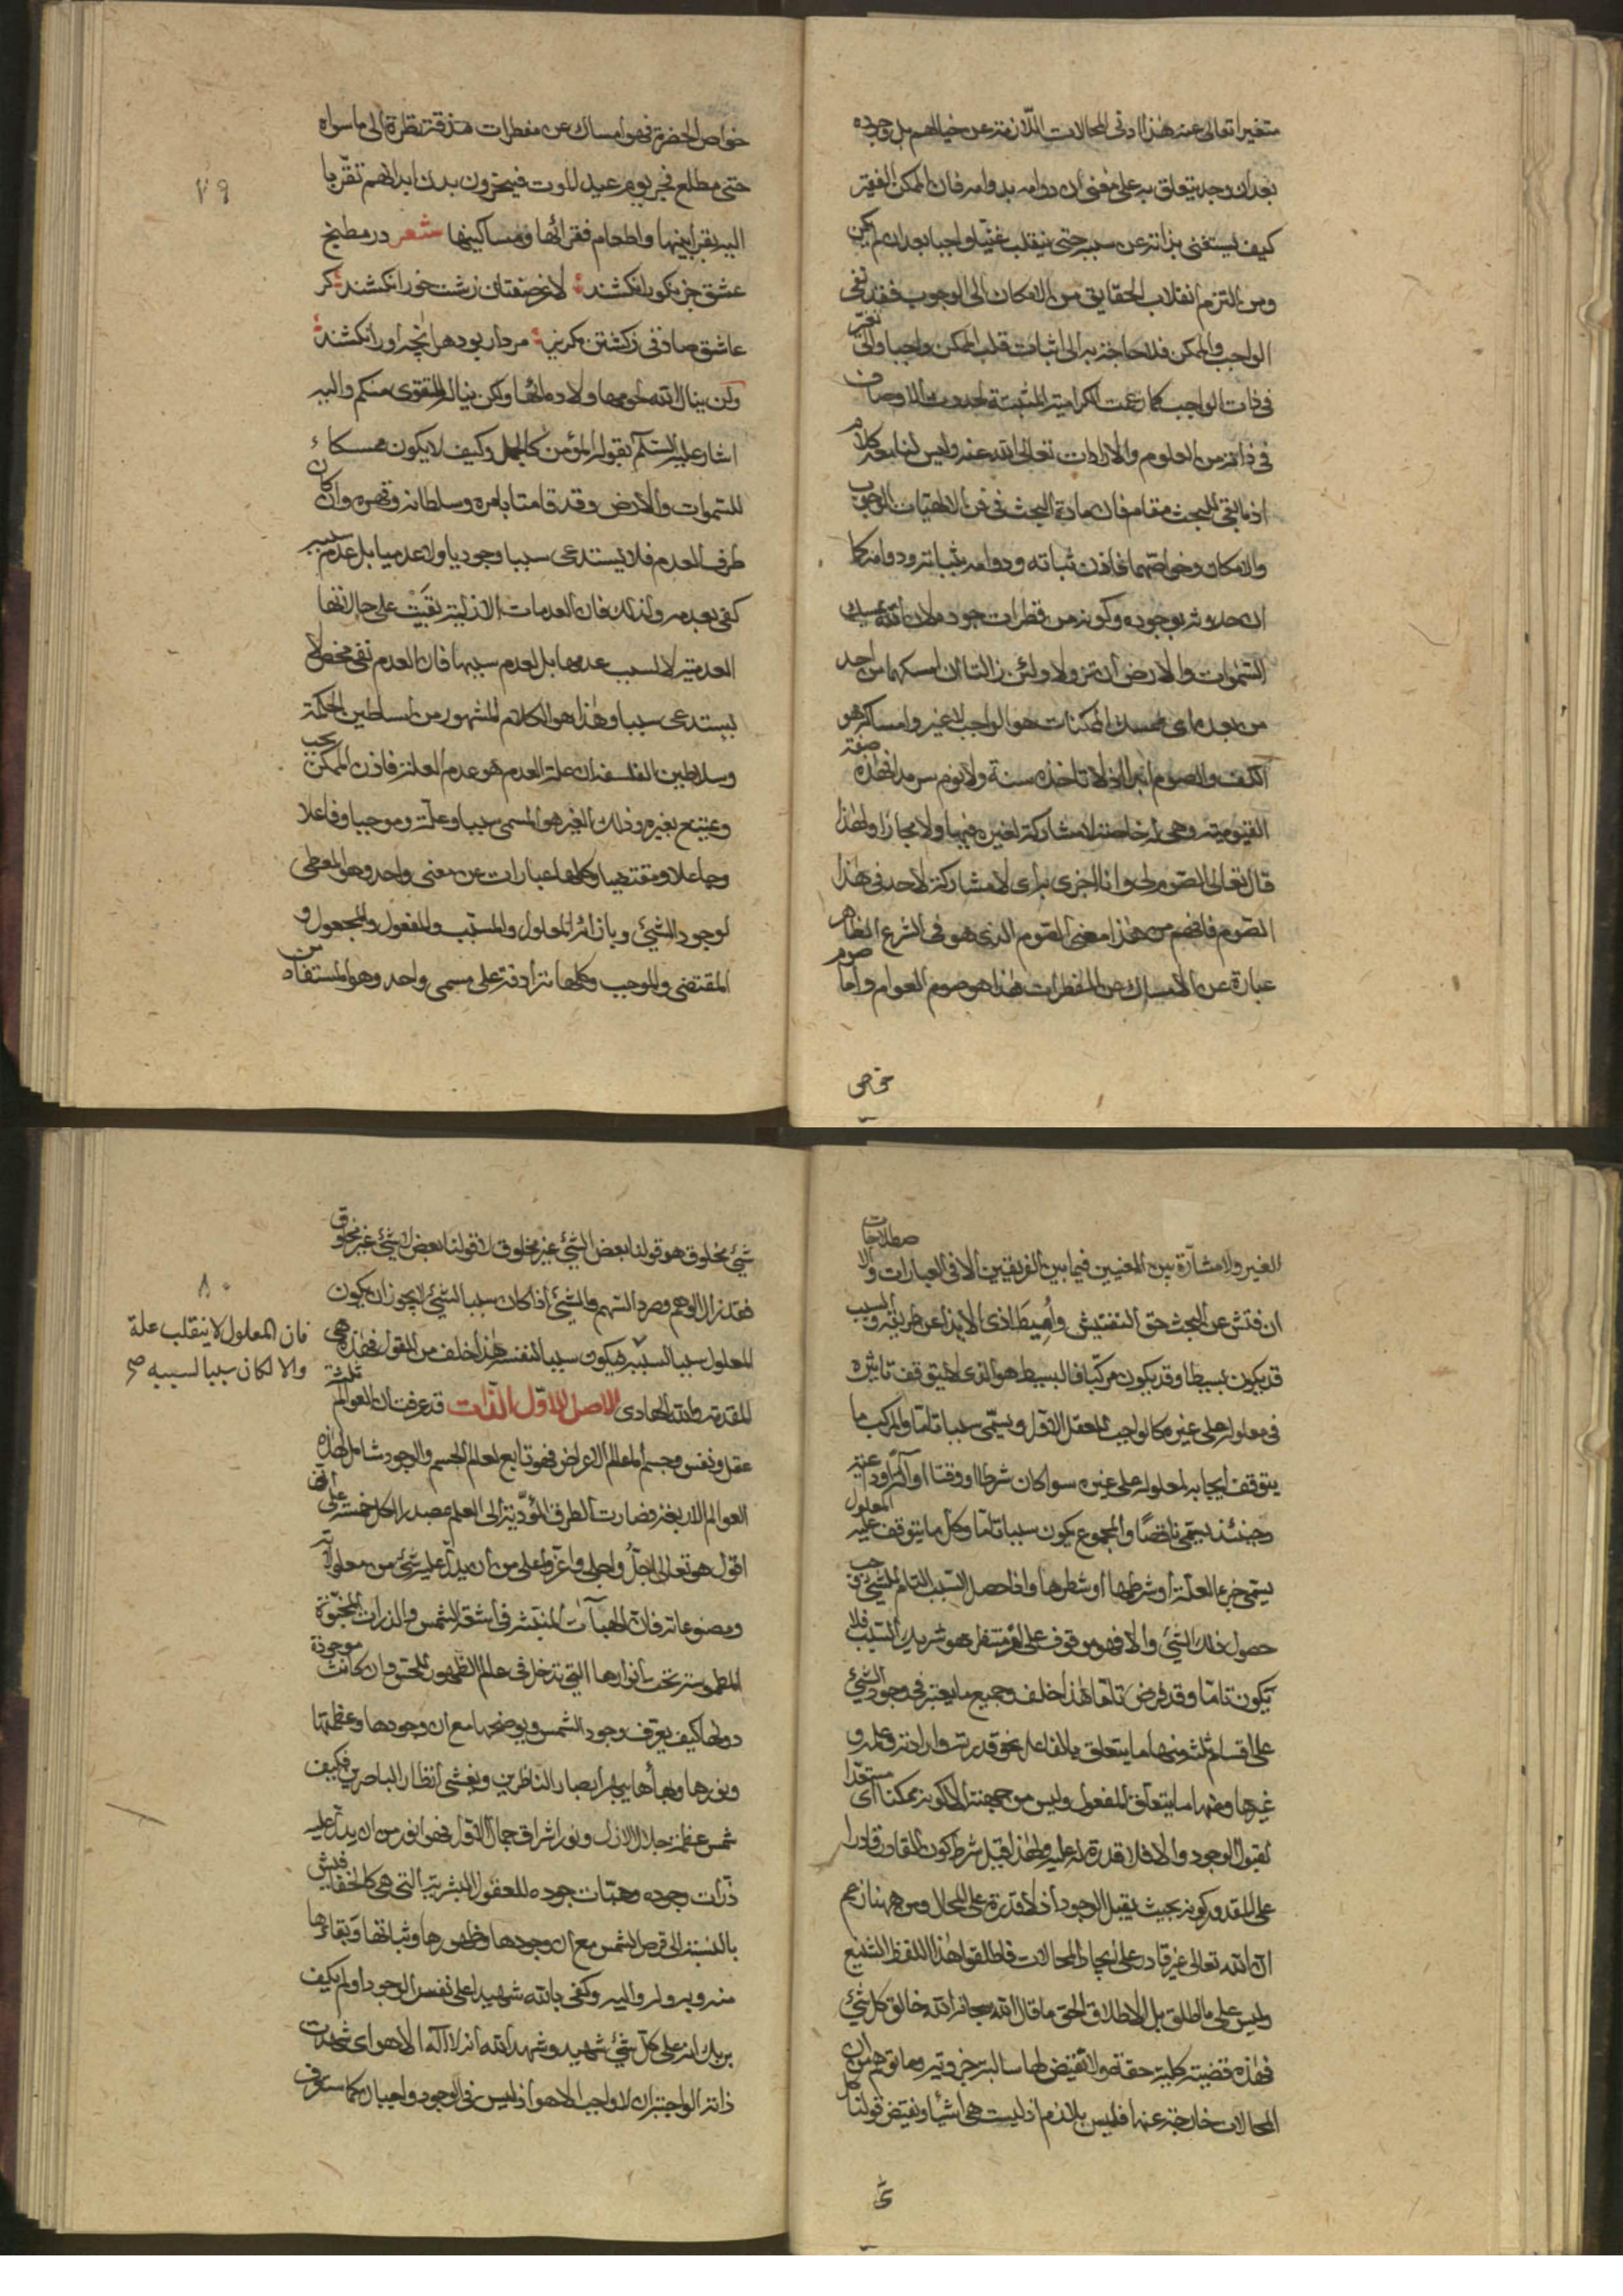 متغيرا تعالى عنه هذا ادنى المحالات اللازمة عن خيالهم بل وجوده
بعد ان وجد يتعلق به على معنى ان دوامه بدوامه فان الممكن الفقير
كيف يستغنى بذاته عن سببه حتى ينقلب غنيا واجبا بعد ان لم يكن
ومن التزم انقلاب الحقايق من الامكان الى الوجوب فقد نفى
الواجب والممكن فلا حاجة به الى اثبات قلب الممكن واجبا والى تغير
فى ذات الواجب كما زعمت الكرامية المثبتة لحدوث الاوصاف
فى ذاته من العلوم والارادات تعالى الله عنه وليس لنا معه كلام
اذ ما بقى للبحث مقام فان مادة البحث فى فن الالهيات الوجوب
والامكان وخواصهما فاذن ثباته ودوامه بثباته ودوامه كما
ان حدوثه بوجوده وكونه من قطرات جوده ان الله يمسك
السموات والارض ان تزولا ولئن زالتا ان امسكهما من احد
من بعده اى ممسك الممكنات هو الواجب لا غير وامساكه هو
الكف والصوم لا تاخذه سنة ولا نوم سرمدا فهذه صفة
القيومية وهى له خاصة لا مشاركة لغيره فيها ولا مجازا ولهذا
قال تعالى الصوم لى وانا اجزى به اى لا مشاركة لاحد فى هذا
الصوم فافهم من هذا معنى الصوم الذى هو فى الشرع الظاهر
عبارة عن الامساك عن المفطرات هذا هو صوم العوام واما صوم
خواص
خواص الحضرة فهو امساك عن مفطرات نظرة الى ما سواه
حتى مطلع فجر يوم عيد الموت فينحرون بدن ابدانهم تقربا
اليه بقرابينها واطعام فقرائها ومساكينها شعر در مطبخ
عشق جز نكو را نكشند لاغر صفتان زشت خو را نكشند كر
عاشق صادقى ز كشتن مكريز مردار بود هر انچه او را نكشند
ولن ينال الله لحومها ولا دمائها ولكن يناله التقوى منكم واليه
اشار عليه السلم بقوله المؤمن كالجمل وكيف لا يكون ممسكا
للسموات والارض وقد قامتا بامره وسلطانه وقهره وان كان
طرف العدم فلا يستدعى سببا وجوديا ولا عدميا بل عدم سببه
كفى بعدمه ولذلك فان العدمات الازلية بقيت على حالاتها
العدمية لا لسبب عدمها بل لعدم سببها فان العدم نفى محض لا
يستدعى سببا وهذا هو الكلام المشهور من اساطين الحكمة
وسلاطين الفلسفة ان علة العدم هو عدم العلة فاذن الممكن يجب
ويمتنع بغيره وذلك الغير هو المسمى سببا وعلة وموجبا وفاعلا
وجاعلا ومقتضيا وكلها عبارات عن معنى واحد وهو المعطى
لوجود الشئ وبازائه المعلول والمسبب والمفعول والمجعول و
المقتضى والموجب وكلها مترادفة على مسمى واحد وهو المستفاد من
٧٩
الغير ولا مشاحة بين المعنيين فيما بين الفريقين الا فى العبارات والاصطلاحات
ان فتش عن البحث حق التفتيش واميط اذى الايذاء عن طريقه والسبب
قد يكون بسيطا وقد يكون مركبا فالبسيط هو الذى لا يتوقف تاثيره
فى معلوله على غيره كالواجب للعقل الاول ويسمى سببا تاما والمركب ما
يتوقف ايجابه لمعلوله على غيره سواء كان شرطا او وقتا او آلة او داعية
وحينئذ يسمى ناقصا والمجموع يكون سببا تاما وكل ما يتوقف عليه المعلول
يسمى جزء العلة او شرطها او شطرها واذا حصل السبب التام للشئ وجب
حصول ذلك الشئ والا فهو موقوف على امر منتظر هو شريك السبب فلا
يكون تاما وقد فرض تاما هذا خلف وجميع ما يعتبر فى وجود الشئ
على اقسام ثلثة منها ما يتعلق بالفاعل نحو قدرته وارادته وعلمه و
غيرها ومنها ما يتعلق بالمفعول وليس من جهته الا كونه ممكنا اى مستعدا
لقبول الوجود والا فلا قدرة له عليه ولهذا قيل شرط كون القادر قادرا
على المقدور كونه بحيث يقبل الوجود اذ لا قدرة على المحال ومن ههنا زعم
ان الله تعالى غير قادر على ايجاد المحالات فاطلقوا هذا اللفظ الشنيع
وليس على ما اطلق بل الاطلاق الحق ما قال الله سبحانه الله خالق كل شئ
فهذه قضية كلية حقة ولا نقيض لها سالبة جزوية وما توهم من ان
المحالات خارجة عنه فليس بلازم اذ ليست هى اشياء ونقيض قولنا كل
شئ
شئ مخلوق هو قولنا بعض الشئ غير مخلوق لا قولنا بعض لا شئ غير مخلوق
فقد زال الوهم وصرد السهم والشئ اذا كان سببا لشئ لا يجوز ان يكون
المعلول سببا لسببه فيكون سببا لنفسه هذا خلف من القول فهذه هى
المقدمة والله الهادى الاصل الاول الذات قد عرفت ان العوالم ثلثة
عقل ونفس وجسم اما عالم الاعراض فهو تابع لعالم الجسم والوجود شامل لهذه
العوالم الاربعة فصارت الطرق المؤدية الى العلم بمصدر الكل خمسة على انى
اقول هو تعالى اجل واجلى واعز واعلى من ان يدل عليه شئ من معلولاته
ومصنوعاته فان الهباآت المنتشرة فى اشعة الشمس والذرات المنبثة
المطموسة تحت انوارها التى تدخل فى عالم الظهور للحق وان كانت موجودة
دونها كيف يعرف وجود الشمس ويوضحها مع ان وجودها وعظمتها
ونورها وبهاءها يبهر ابصار الناظرين ويغشى انظار الباصرين فكيف
شمس عظمة جلال الازل ونور اشراق جمال الاول فهو انور من ان يدل عليه
ذرات وجوده وهبات جوده للعقول البشرية التى هى كالخفافيش
بالنسبة الى قرص الشمس مع ان وجودها وظهورها وثباتها وبقاءها
منه وبه وله واليه وكفى بالله شهيدا على نفس الوجود اولم يكف
بربك انه على كل شئ شهيد وشهد الله انه لا اله الا هو اى شهدت
ذاته الواجبة ان لا واجب الا هو اذ ليس فى الوجود واجبان كما ستعرف
٨٠
فان المعلول لا ينقلب علة
والا لكان سببا لسببه صح